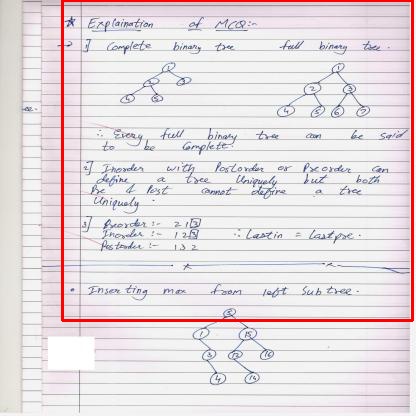 * Explaination of MCQ:-
→ 1] Complete binary tree full binary tree.
1 1
2 3 2 3
4 5 4 5 6 7
∴ Every full binary tree can be said
to be Complete.
2] Inorder with Postorder or Preorder can
define a tree Uniquely but both
Pre & Post cannot define a tree
Uniquely.
3] Preorder:- 2 1 3
Inorder:- 1 2 3 ∴ Lastin = Lastpre.
Postorder:- 1 3 2
• Inserting max from left Subtree.
1 15
3 12 16
4 14